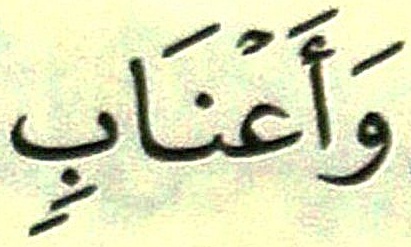 وَأَعْنَابٍ